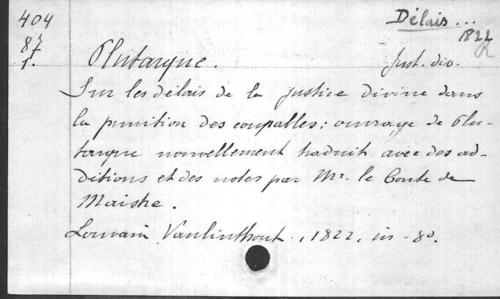 404
87
1.
Délais...
1822
Plutarque. Just. div.
Sur les délais de la justice divine dans
la punition des coupables: ouvrage de Plu-
tarque nouvellement traduit avec des ad-
ditions et des notes par Mr. le Comte de
Maistre.
Louvain Vanlinthout, 1822, in-8o.